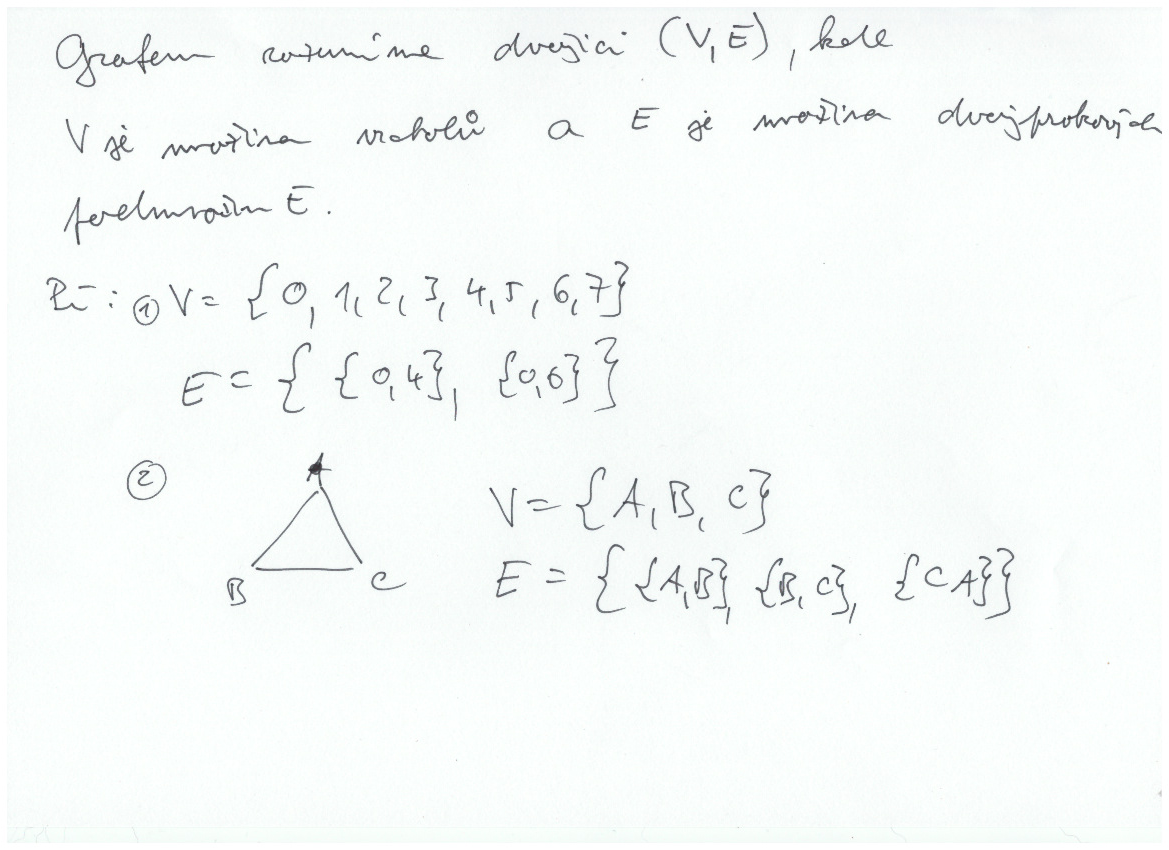 Grafem rozumíme dvojici (V, E), kde
V je množina vrcholů a E je množina dvouprvkových
podmnožin E.
Př: ① V = {0, 1, 2, 3, 4, 5, 6, 7}
E = { {0,4}, {0,6} }
②
A
B C
V = {A, B, C}
E = { {A,B}, {B,C}, {C A}}